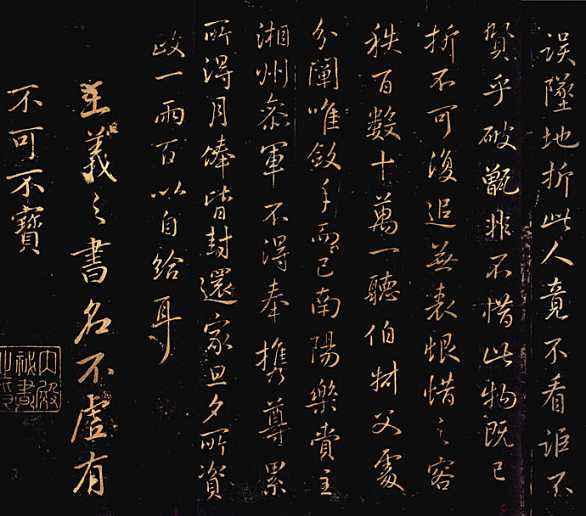 误墜地折此人竟不看詎不
賢乎破甑非不惜此物既已
折不可復追無表恨惜之容
秩百數十萬一聽伯父處
分闡唯斂手而已南陽樂貴主
湘州參軍不得奉攜尊累
所得月俸皆封還家旦夕所資
政一兩百以自給耳
王羲之書名不虛有
不可不寶
内殿秘書之印